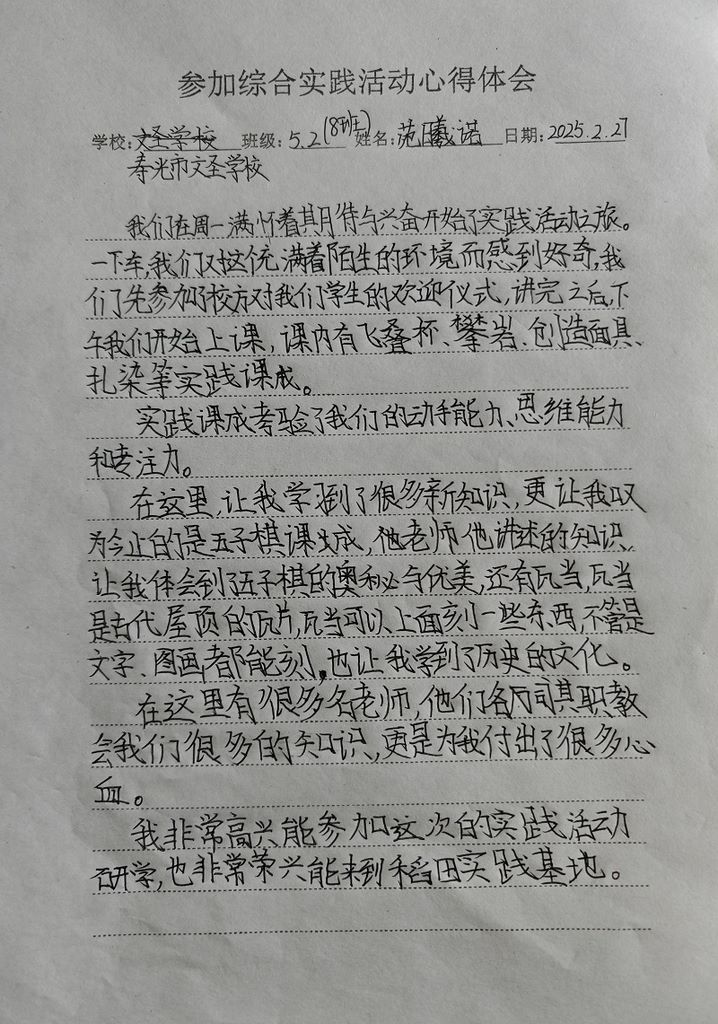 参加综合实践活动心得体会
学校:文圣学校 班级:5.2(8班) 姓名:范曦诺 日期:2025.2.27
寿光市文圣学校
我们在周一满怀着期待与兴奋开始了实践活动之旅。
一下车,我们对这充满着陌生的环境而感到好奇,我
们先参加了校方对我们学生的欢迎仪式,讲完之后,下
午我们开始上课,课内有飞叠杯、攀岩、创造面具、
扎染等实践课成。
实践课成考验了我们的动手能力、思维能力
和专注力。
在这里,让我学到了很多新知识,更让我叹
为今止的是五子棋课成,他老师他讲述的知识,
让我体会到了五子棋的奥秘与优美,还有瓦当,瓦当
是古代屋顶的瓦片,瓦当可以上面刻一些东西,不管是
文字、图画,都能刻,也让我学到了历史的文化。
在这里有很多名老师,他们各司其职教
会我们很多的知识,更是为我付出了很多心
血。
我非常高兴能参加这次的实践活动
研学,也非常荣兴能来到稻田实践基地。